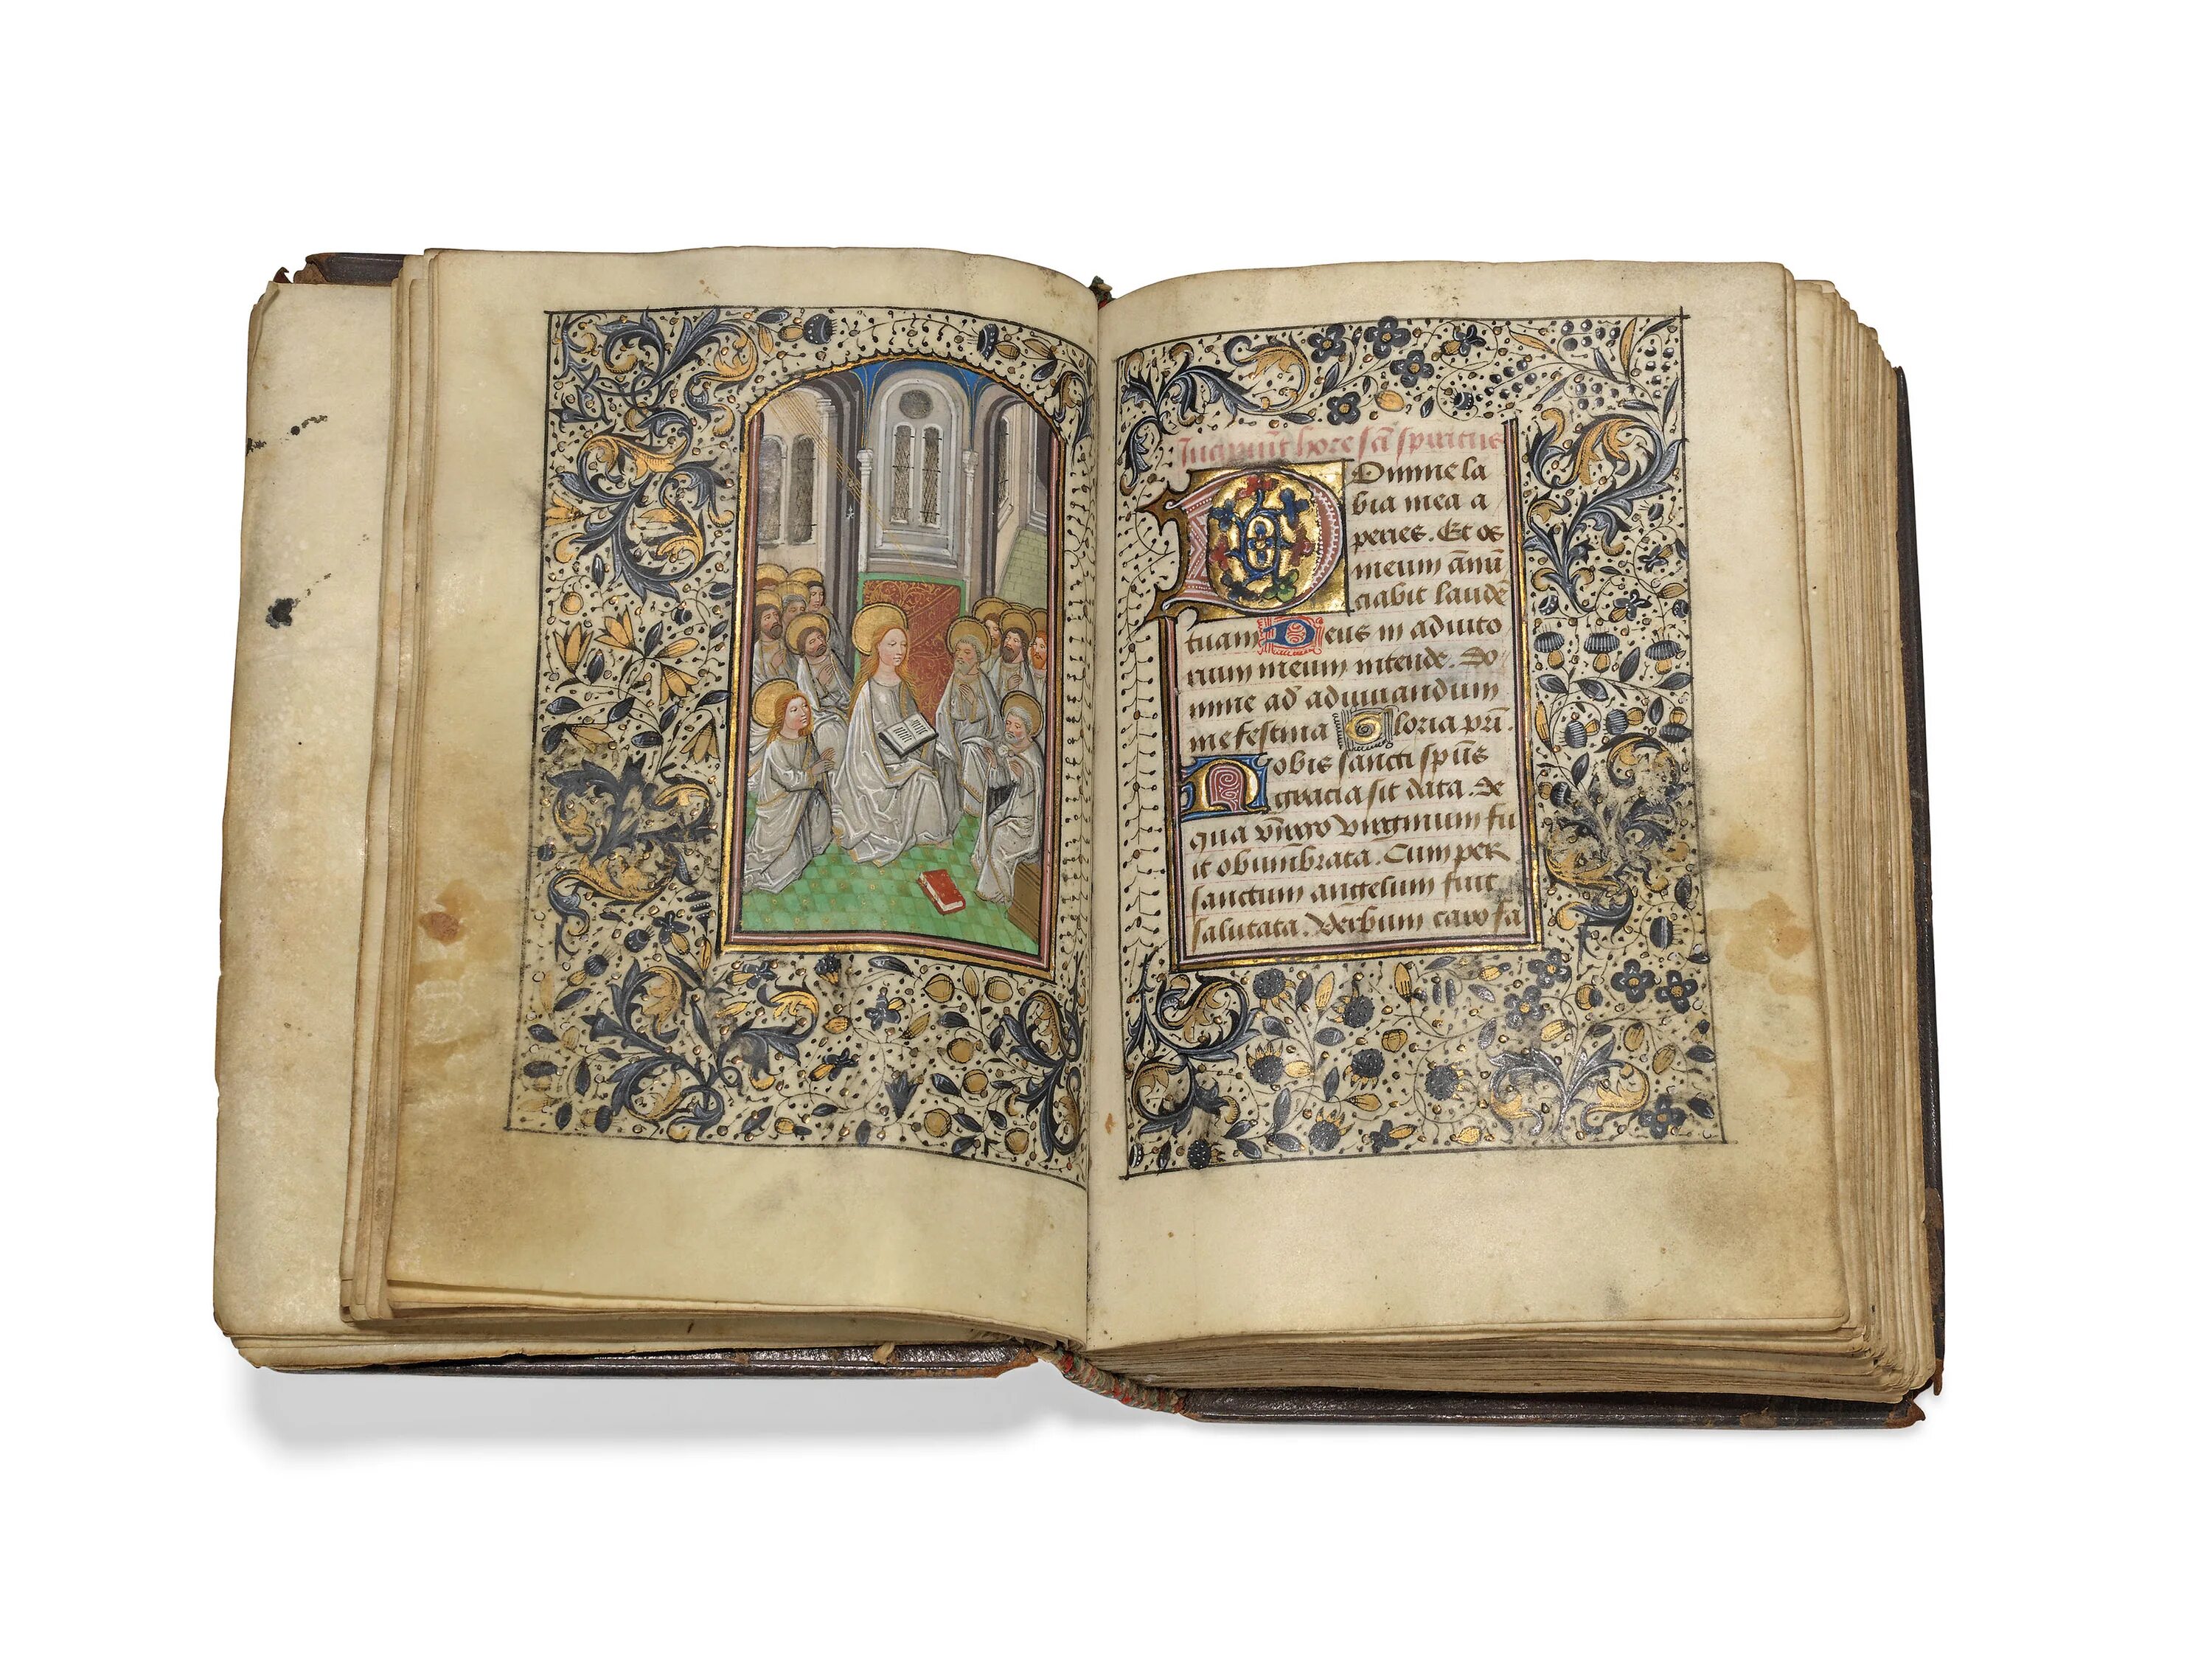 Incipiu͂t hore sc͂i spiritus
Domine la
bia mea a
peries. Et os
meum a͂nu͂
ciabit laude͂
tuam Deus in adiuto
rium meum intende. Do
mine ad adiuuandum
me festina Gloria pri͂.
Nobis sancti sp͂us
gracia sit data. de
qua virgo virginum fu
it obumbrata. Cum per
sanctum angelum fuit
salutata. Verbum caro fa